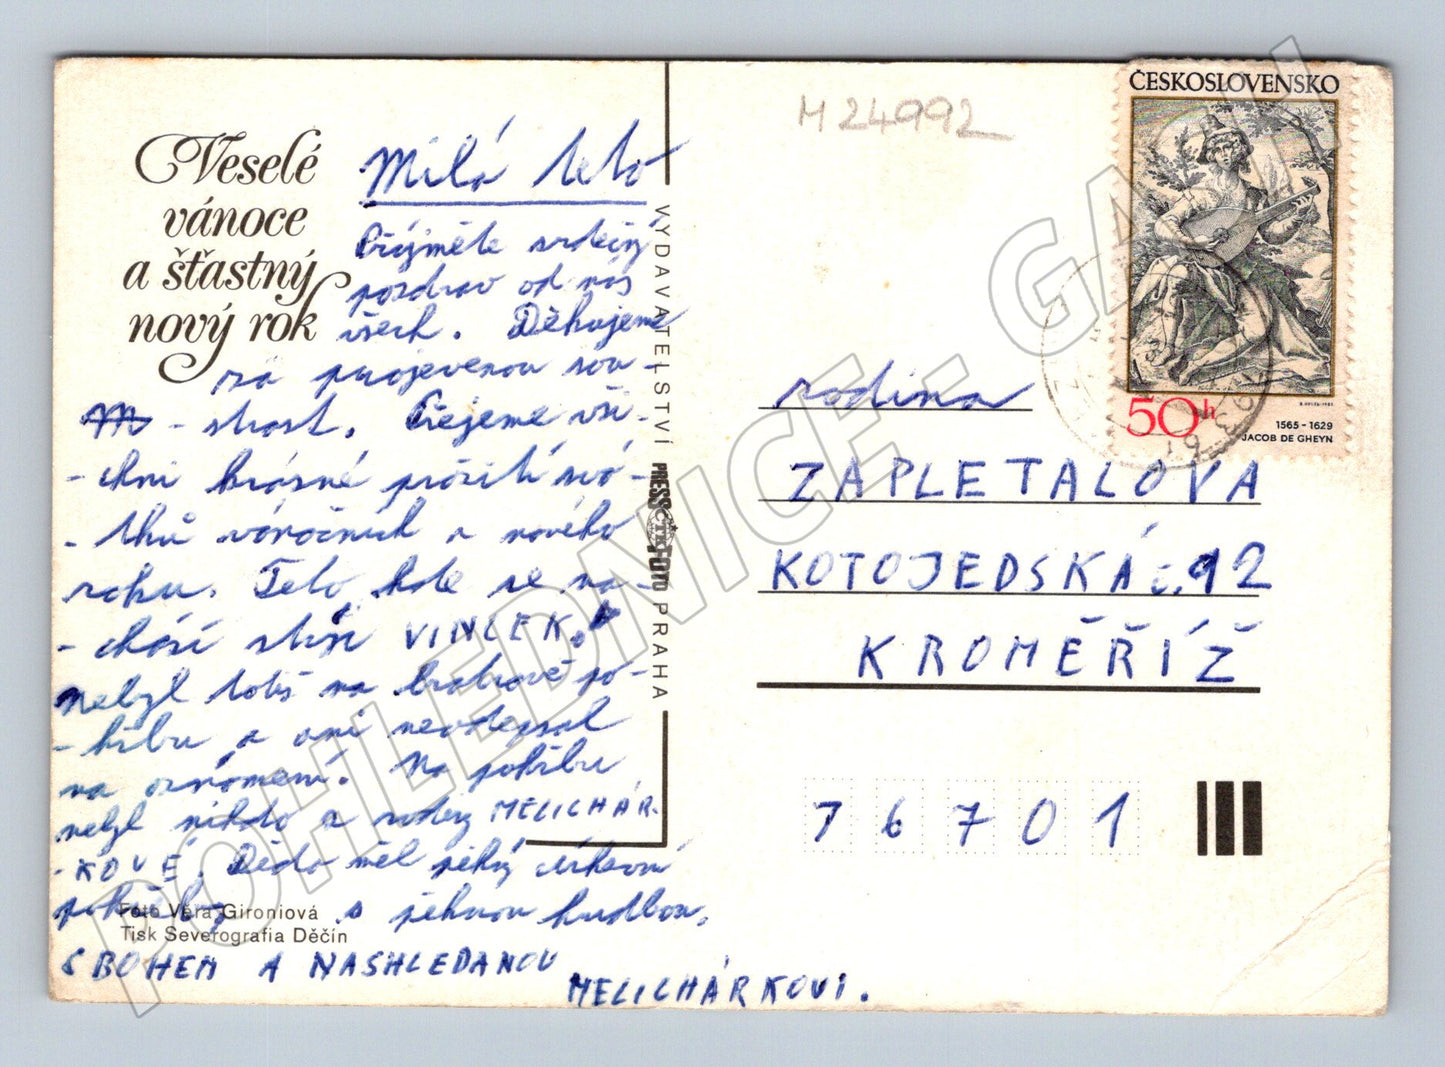 M 24992
ČESKOSLOVENSKO
50h
1565 - 1629
JACOB DE GHEYN
Veselé
vánoce
a šťastný
nový rok
Milá teto
Přijměte srdečný
pozdrav od nás
všech. Děkujeme
za projevenou sou-
- strast. Přejeme vši-
- chni krásné prožití svá-
- tků vánočních a nového
roku. Teto, kde se na-
- chází strýc VINCEK.
nebyl totiž na bratrově po-
- hřbu a ani neodepsal
na oznámení. Na pohřbu
nebyl nikdo z rodiny MELICHÁR-
- KOVÉ. Děda měl pěkný církevní
pohřeb s pěknou hudbou.
S BOHEM A NASHLEDANOU
MELICHÁRKOVI.
Foto Věra Gironiová
Tisk Severografia Děčín
VYDAVATELSTVÍ PRESSFOTO PRAHA
ČTK
rodina
ZAPLETALOVA
KOTOJEDSKÁ č. 92
KROMĚŘÍŽ
76701
POHLEDNICE - GALH